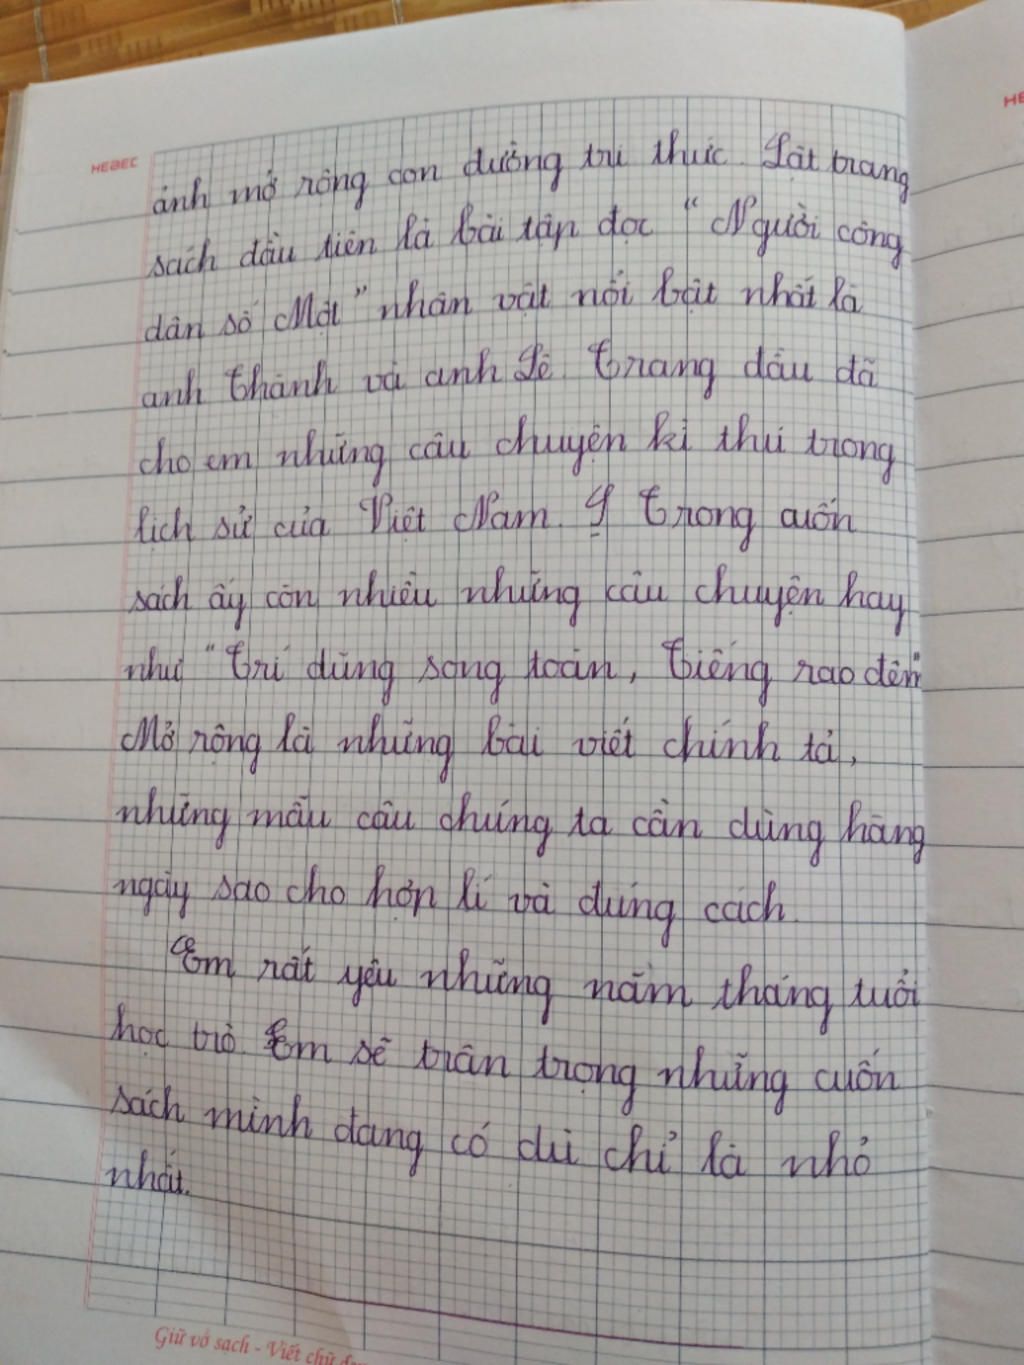 HEBEC
HE
ảnh mở rộng con đường tri thức. Lật trang
sách đầu tiên là bài tập đọc "Người công
dân số Một" nhân vật nổi bật nhất là
anh Thành và anh Lê. Trang đầu đã
cho em những câu chuyện kì thú trong
lịch sử của Việt Nam. Trong cuốn
sách ấy còn nhiều những câu chuyện hay
như "Trí dũng song toàn, Tiếng rao đêm"
Mở rộng là những bài viết chính tả,
những mẫu câu chúng ta cần dùng hàng
ngày sao cho hợp lí và đúng cách.
Em rất yêu những năm tháng tuổi
học trò. Em sẽ trân trọng những cuốn
sách mình đang có dù chỉ là nhỏ
nhất.
Giữ vở sạch - Viết chữ